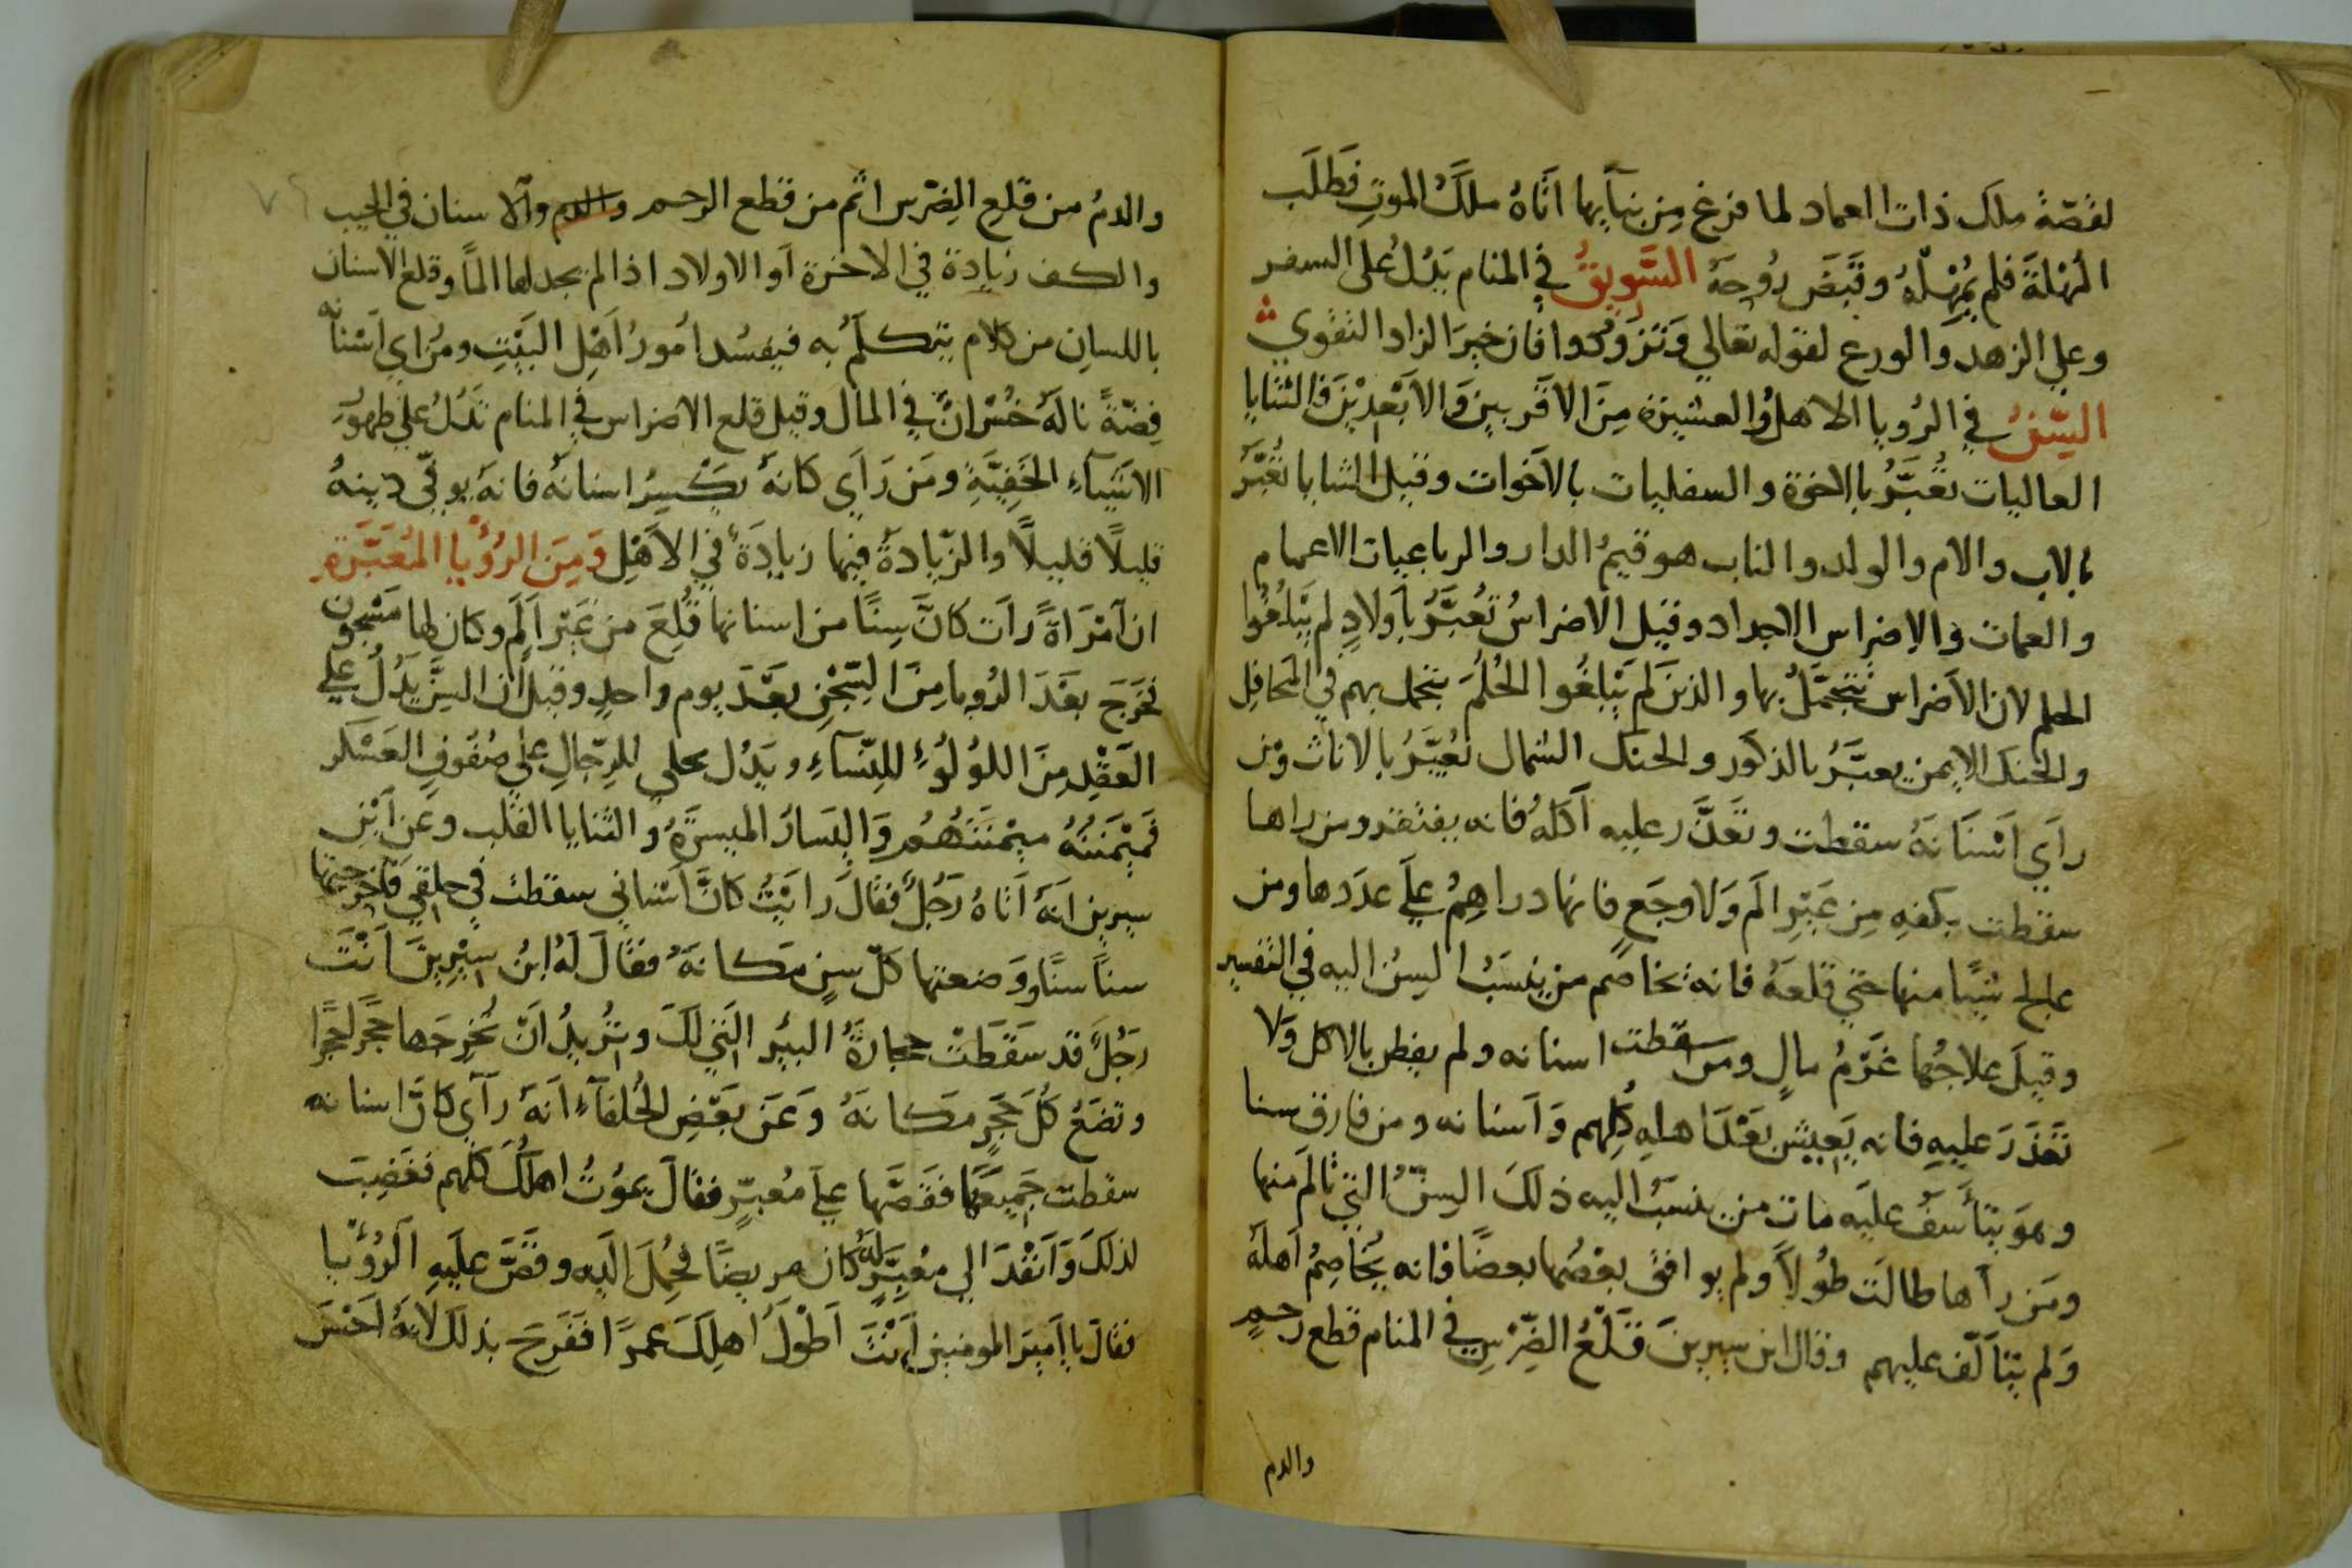 لقصّة ملك ذات العماد لما فرغ مِن بنآيها اتاهُ ملكُ الموتِ فَطَلَب
المُهْلَةَ فلم يُمْهِلْهُ وقَبَضَ رُوحَهُ السَّوِيقُ في المنام يَدُلُ على السفر
وعلي الزهد والورع لقوله تعالي وَتَزَوَّدوا فان خيرَ الزاد التقوي
السِّنُ في الرُويا الاهلُ والعشيرة مِنَ الاقربين وَالاَبْعَدِيْنَ فالثنايا
العاليات تُعَبَّرُ بالاخوة والسفليات بالاَخوات وقيل الثنايا تُعَبَّرُ
بالاب والام والولد والناب هو قيمُ الدار والرباعيات الاعمام
والعمات والاضراس الاجداد وقيل الاضراسُ تُعَبَّرُ باَولادٍ لم يَبْلُغُوا
الحلم لان الاَضراس تتجمَّلُ بها والذين لم يَبْلغُوا الحُلُمَ يتجمل بهم في المَحافِل
والحنك الايمن يعبَّرُ بالذكور والحنك الشمال تُعَبَّرُ بالاناث ومن
رآي اَسْنَانَهُ سقطت وتعذَّر عليه اَكلُه فانه يفتقر ومن راها
سقطت بكفهِ مِن غَيْرِ الَم وَلا وجَع فانها دراهِمُ علَي عدَدها ومن
عالج شيًا منها حتي قَلعَهُ فانه يخاصم من ينسَبُ السِنُ اليه في التفسير
وقيلَ علاجُها غَرْمُ مالٍ ومن سقطت اسنانه ولم يفطن بالاكل وَلا
تَعَذَرَ عليهِ فانه يَعِيشُ بَعْدَ اهلهِ كُلِهم وَاَسنانه ومن فارق سنا
وهوَ يتأَسَفُ عليَه مات من ينسَبُ اليه ذلكَ السِنُّ التي تالم منها
ومَن رآها طالَت طُولاً ولم يوافق بعضُها بعضًا فانه يُخاصِمُ اَهلَهُ
وَلم يتاَلَف عليهم وقال ابن سيرينَ قَلْعُ الضِرْسِ في المنام قطع رحمٍ
والدم
والدمُ من قَلعِ الضِرْس اثم من قطع الرحم والدم وآلا سنان في الجيب
والكف زيادة في الاخوة اَو الاولاد اذا لم يجد لها المًا وقلع الاسنان
باللسانِ من كلام يتكلَمُ به فيفسُد اُمورُ اَهْلِ البَيْتِ ومن راي اَسْنانَه
فِضّةً نالَهُ خُسْرانٌ في المال وقيل قلع الاضراس في المنام تَدُلُ علي ظهوُر
الاشَيآءِ الخَفِيَّةِ ومَن رَآي كانهُ يَكْسِرُ اسنانَهُ فانهُ يوفي دينهُ
قليلاً قليلاً والزّيادةُ فيها زيادَة في الاَهْلِ وَمِنَ الرُؤْيا المُعَبَّرَةِ
ان اَمْرَاةً رَاَت كانَّ سِنًا من اسنانها قُلِعَ من غَيْر اَلَمِ وكان لها مَسْجون
فخَرَجَ بعْدَ الرُويا مِنَ السِّجْنِ بعْدَ يومِ واحدٍ وقيلَ ان السِنَّ يَدُلُ علي
العَقْدِ مِنَ اللوُلُوءِ للنِسَآءِ ويَدُل علي للرِّجالِ علي صُفُوفِ العَسْكَر
فَمَيْمَنتُهُ مَيْمَنَتُهُم وَاليَسارُ الميسَرَةُ والثنايا القلب وعَن اَبْنِ
سيرين انَهُ اَتاهُ رَجُلٌ فقالَ رايْتُ كانَّ اَسناني سقطت في حلقِي فاَخْرَجتها
سناً سنًا ووَضعتها كلّ سِنٍ مَكانَهُ فقالَ لَهُ ابنُ سِيْرِينَ اَنْتَ
رَجُلٌ قد سَقَطَتْ حِجارَةُ البيُر الَتي لكَ وتُريدُ اَنْ تُخْرِجَها حَجَرًا حَجَرًا
وتضَعُ كُلَ حَجَرٍ مَكانَهُ وَعَن بَعْضِ الخُلفآءِ انَهُ رَآي كانَّ اسنانه
سقطت جَمِيعَها فقَصَّها علي مُعبِّرٍ فقالَ يمَوُتُ اهلُكَ كلّهم فغَضِبَ
لذلكَ وَاَنْفَدَ الي مُعَبِّرٍ لَهُ كان مريضًا فحُمِلَ اليَه وقصَّ علَيهِ الرُؤْيا
فقالَ يا اَميرَ المومنين اَنْتَ اَطْوَلُ اَهلِكَ عمرًا ففَرِحَ بذلكَ لانَهُ اَحْسَنَ